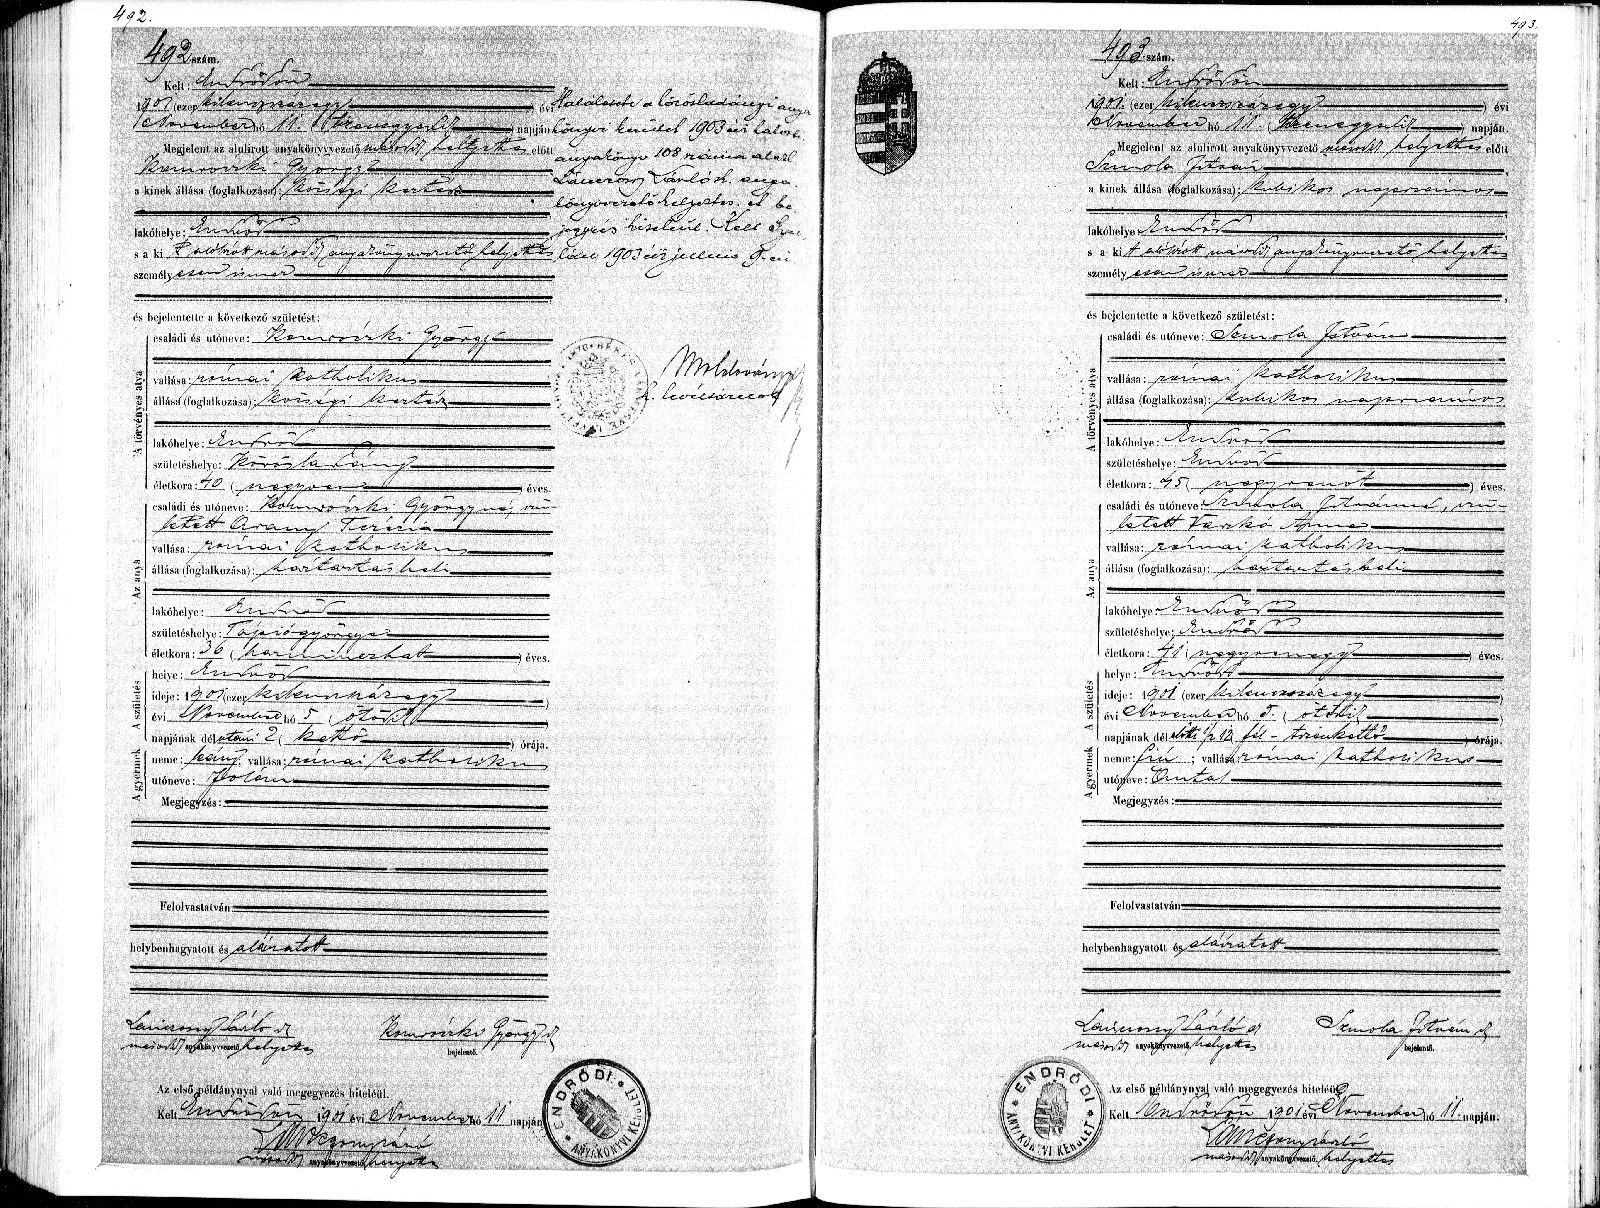 492.
492 szám.
Kelt: Endrődön
1901 (ezer kilenczszázegy) évi
November hó 11. (tizenegyedik) napján
Megjelent az alulirott anyakönyvvezető másod helyettes előtt
György
a kinek állása (foglalkozása): községi kertész
lakóhelye: Endrőd
s a kit alólirott másod anyakönyvvezető helyettes
személyesen ismer
és bejelentette a következő születést:
A törvényes atya
családi és utóneve: György
vallása: római katholikus
állása (foglalkozása): községi kertész
lakóhelye: Endrőd
születéshelye: Körösladány
életkora: 40 (negyven) éves.
Az anya
családi és utóneve: Györgyné, szü-
letett Arany Terézia
vallása: római katholikus
állása (foglalkozása): háztartásbeli
lakóhelye: Endrőd
születéshelye: Tápiógyörgye
életkora: 36 (harminczhat) éves.
A születés
helye: Endrőd
ideje: 1901 (ezer kilenczszázegy)
évi November hó 5 (ötödik)
napjának délutáni 2 (kettő) órája.
A gyermek
neme: leány; vallása: római katholikus
utóneve: Jolán
Megjegyzés:
Felolvastatván
helybenhagyatott és aláiratott
László
másod anyakönyvvezető helyettes
György
bejelentő.
Az első példánynyal való megegyezés hiteléül.
Kelt Endrődön 1901 évi November hó 11 napján
másod anyakönyvvezető helyettes
ENDRŐDI
ANYAKÖNYVI KERÜLET
Halálesete a körösladányi anya-
könyvi kerület 1903 évi halotti
anyakönyv 108 száma alatt
László h. anya-
könyvvezető helyettes.
Kelt Gyu-
lán 1903 évi junius 9.-én
h. levéltárnok
493.
493 szám.
Kelt: Endrődön
1901. (ezer kilenczszázegy) évi
November hó 11. (tizenegyedik) napján.
Megjelent az alulirott anyakönyvvezető másod helyettes előtt
Szmola István
a kinek állása (foglalkozása): kubikos napszámos
lakóhelye Endrőd
s a kit alólirott másod anyakönyvvezető helyettes
személyesen ismer
és bejelentette a következő születést:
A törvényes atya
családi és utóneve: Szmola István
vallása: római katholikus
állása (foglalkozása): kubikos napszámos
lakóhelye: Endrőd
születéshelye: Endrőd
életkora: 45 (negyvenöt) éves.
Az anya
családi és utóneve: Szmola Istvánné, szü-
letett Varkó Anna
vallása: római katholikus
állása (foglalkozása): háztartásbeli
lakóhelye: Endrőd
születéshelye: Endrőd
életkora: 41 (negyvenegy) éves.
A születés
helye: Endrőd
ideje: 1901 (ezer kilenczszázegy)
évi November hó 5. (ötödik)
napjának délelőtti ½12 fél-tizenkettő órája.
A gyermek
neme: fiú; vallása: római katholikus
utóneve: Antal
Megjegyzés:
Felolvastatván
helybenhagyatott és aláiratott
László
másod anyakönyvvezető helyettes
Szmola István
bejelentő.
Az első példánynyal való megegyezés hiteléül
Kelt Endrődön 1901 évi November hó 11. napján.
másod anyakönyvvezető, helyettes
ENDRŐDI
ANYAKÖNYVI KERÜLET